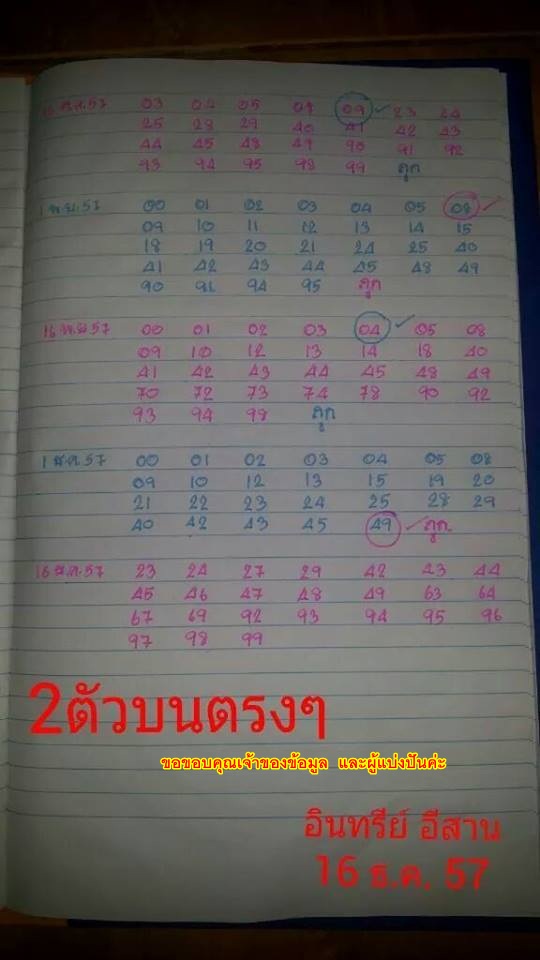 16 ต.ค.57 03 04 05 08 09 23 24
25 28 29 40 41 42 43
44 45 48 49 90 91 92
93 94 95 98 99 ถูก
1 พ.ย.57 00 01 02 03 04 05 08
09 10 11 12 13 14 15
18 19 20 21 24 25 40
41 42 43 44 45 48 49
90 91 94 95 ถูก
16 พ.ย.57 00 01 02 03 04 05 08
09 10 12 13 14 18 40
41 42 43 44 45 48 49
70 72 73 74 78 90 92
93 94 98 ถูก
1 ธ.ค.57 00 01 02 03 04 05 08
09 10 12 13 15 19 20
21 22 23 24 25 28 29
40 42 43 45 49 ถูก
16 ธ.ค.57 23 24 27 29 42 43 44
45 46 47 48 49 63 64
67 69 92 93 94 95 96
97 98 99
2ตัวบนตรงๆ
ขอขอบคุณเจ้าของข้อมูล และผู้แบ่งปันค่ะ
อินทรีย์ อีสาน
16 ธ.ค. 57